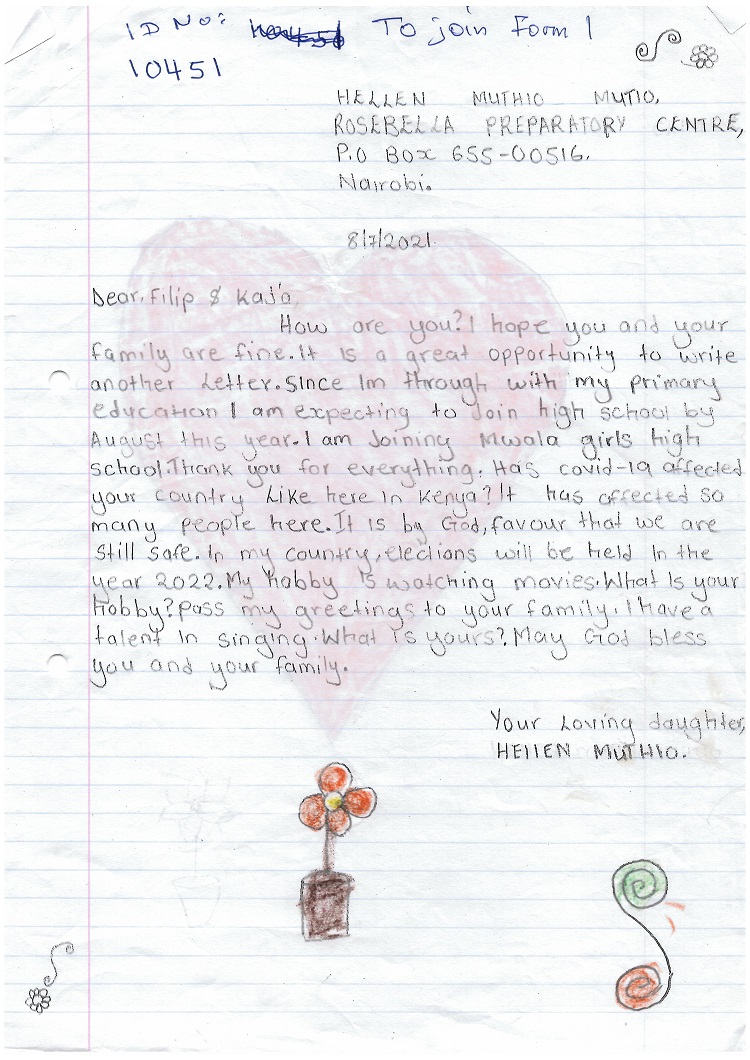 ID No: To join Form 1
10451
HELLEN MUTHIO MUTIO,
ROSEBELLA PREPARATORY CENTRE,
P.O BOX 655-00516.
Nairobi.
8/7/2021
Dear, Filip & Kaja,
How are you? I hope you and your
family are fine. It is a great opportunity to write
another Letter. Since Im through with my primary
education I am expecting to Join high school by
August this year. I am Joining Mwala girls high
school. Thank you for everything. Has covid-19 affected
your country Like here In Kenya? It has affected so
many people here. It is by God, favour that we are
still safe. In my country, elections will be held In the
year 2022. My hobby Is watching movies. What Is your
hobby? Pass my greetings to your family. I have a
talent In singing. What Is yours? May God bless
you and your family.
Your Loving daughter,
HEllEN MUTHIO.